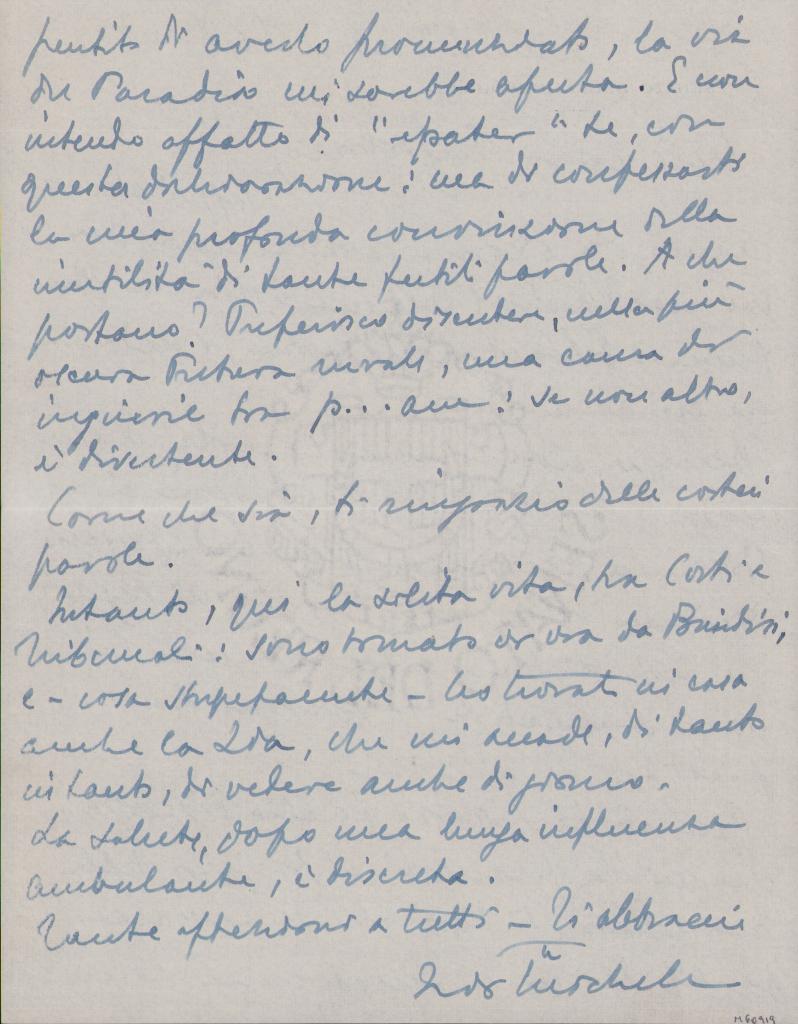 pentito di averlo pronunziato, la via
del Paradiso mi sarebbe aperta. E non
intendo affatto di "epater" te, con
questa dichiarazione: ma di confessarti
la mia profonda convinzione della
inutilità di tante futili parole. A che
portano? Preferisco discutere, nella più
oscura Pretura rurale, una causa di
ingiurie tra p...ane: se non altro,
è divertente.
Come che sia, ti ringrazio delle cortesi
parole.
Intanto, qui la solita vita, tra Corti e
Tribunali: sono tornato or ora da Brindisi,
e - cosa stupefacente - ho trovato in casa
anche la Ida, che mi accade, di tanto
in tanto, di vedere anche di giorno.
La salute, dopo una lunga influenza
ambulante, è discreta.
Tante affezioni a tutti - Ti abbraccio
Michele
M60919